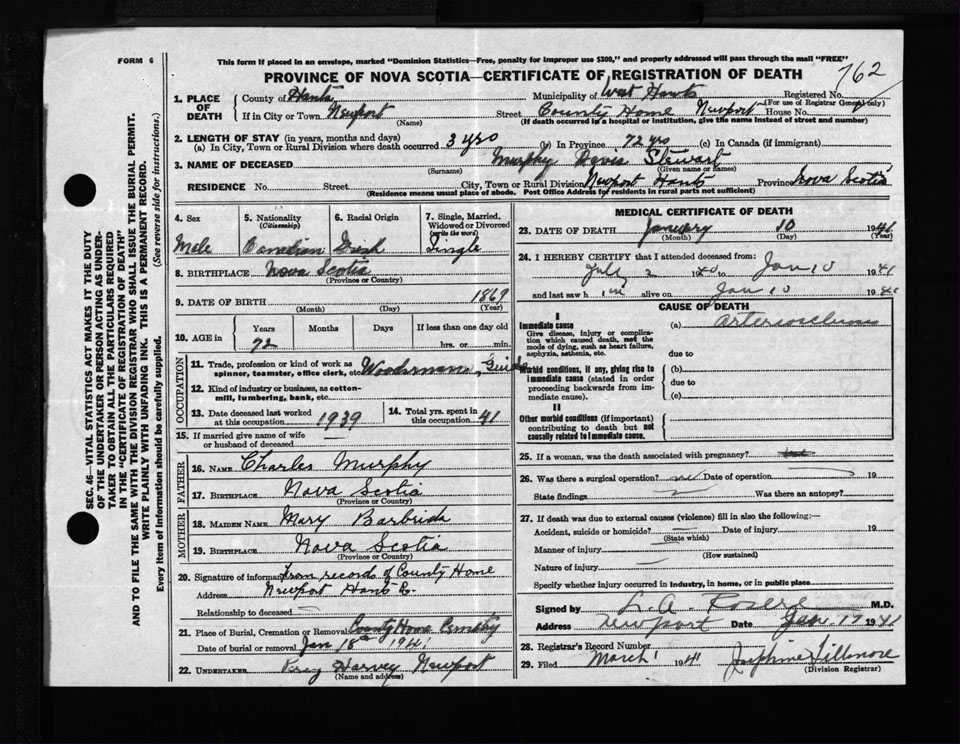 FORM 6
This form if placed in an envelope, marked "Dominion Statistics—Free, penalty for improper use $300," and properly addressed will pass through the mail "FREE"
PROVINCE OF NOVA SCOTIA—CERTIFICATE OF REGISTRATION OF DEATH
762
1. PLACE OF DEATH
County of Hants Municipality of West Hants Registered No.
(For use of Registrar General only)
If in City or Town Newport Street County Home Newport House No.
(Name) (If death occurred in a hospital or institution, give the name instead of street and number)
2. LENGTH OF STAY (in years, months and days)
(a) In City, Town or Rural Division where death occurred 3 yrs (b) In Province 72 yrs (c) In Canada (if immigrant)
3. NAME OF DECEASED Murphy Stewart
(Surname) (Given name or names)
RESIDENCE No. Street City, Town or Rural Division Newport Hants Province Nova Scotia
(Residence means usual place of abode. Post Office Address for residents in rural parts not sufficient)
SEC. 46—VITAL STATISTICS ACT MAKES IT THE DUTY
OF THE UNDERTAKER OR PERSON ACTING AS UNDER-
TAKER TO OBTAIN ALL THE PARTICULARS REQUIRED
IN THE "CERTIFICATE OF REGISTRATION OF DEATH"
AND TO FILE THE SAME WITH THE DIVISION REGISTRAR WHO SHALL ISSUE THE BURIAL PERMIT.
WRITE PLAINLY WITH UNFADING INK. THIS IS A PERMANENT RECORD.
Every item of Information should be carefully supplied. (See reverse side for instructions.)
4. Sex
Male
5. Nationality
(Citizenship)
Canadian
6. Racial Origin
7. Single, Married, Widowed or Divorced
(write the word)
Single
8. BIRTHPLACE Nova Scotia
(Province or Country)
9. DATE OF BIRTH 1869
(Month) (Day) (Year)
10. AGE in
Years Months Days If less than one day old
72 hrs. or min.
OCCUPATION
11. Trade, profession or kind of work as spinner, teamster, office clerk, etc. Guide
12. Kind of industry or business, as cotton-mill, lumbering, bank, etc.
13. Date deceased last worked at this occupation 1939
14. Total yrs. spent in this occupation 41
15. If married give name of wife or husband of deceased —
FATHER
16. NAME Charles Murphy
17. BIRTHPLACE Nova Scotia
(Province or Country)
MOTHER
18. MAIDEN NAME Mary
19. BIRTHPLACE Nova Scotia
(Province or Country)
20. Signature of informant From records of County Home
Address Newport Hants Co.
Relationship to deceased
21. Place of Burial, Cremation or Removal County Home
Date of burial or removal Jan 18th 1941
22. UNDERTAKER Harvey Newport
(Name and address)
MEDICAL CERTIFICATE OF DEATH
23. DATE OF DEATH January 10 1941
(Month) (Day) (Year)
24. I HEREBY CERTIFY that I attended deceased from:
July 2 1940 to Jan 10 1941
and last saw h im alive on Jan 10 1941
CAUSE OF DEATH
I
Immediate cause
Give disease, injury or complication which caused death, not the mode of dying, such as heart failure, asphyxia, asthenia, etc.
(a)
due to
Morbid conditions, if any, giving rise to immediate cause (stated in order proceeding backwards from immediate cause).
(b)
due to
(c)
II
Other morbid conditions (if important) contributing to death but not causally related to immediate cause.
25. If a woman, was the death associated with pregnancy?
26. Was there a surgical operation? Date of operation 19
State findings Was there an autopsy?
27. If death was due to external causes (violence) fill in also the following:—
Accident, suicide or homicide? Date of injury 19
(State which)
Manner of injury
(How sustained)
Nature of injury
Specify whether injury occurred in industry, in home, or in public place
Signed by M.D.
Address Newport Date Jan 17 1941
28. Registrar's Record Number
29. Filed March 1 1941 Josephine Fillmore
(Division Registrar)